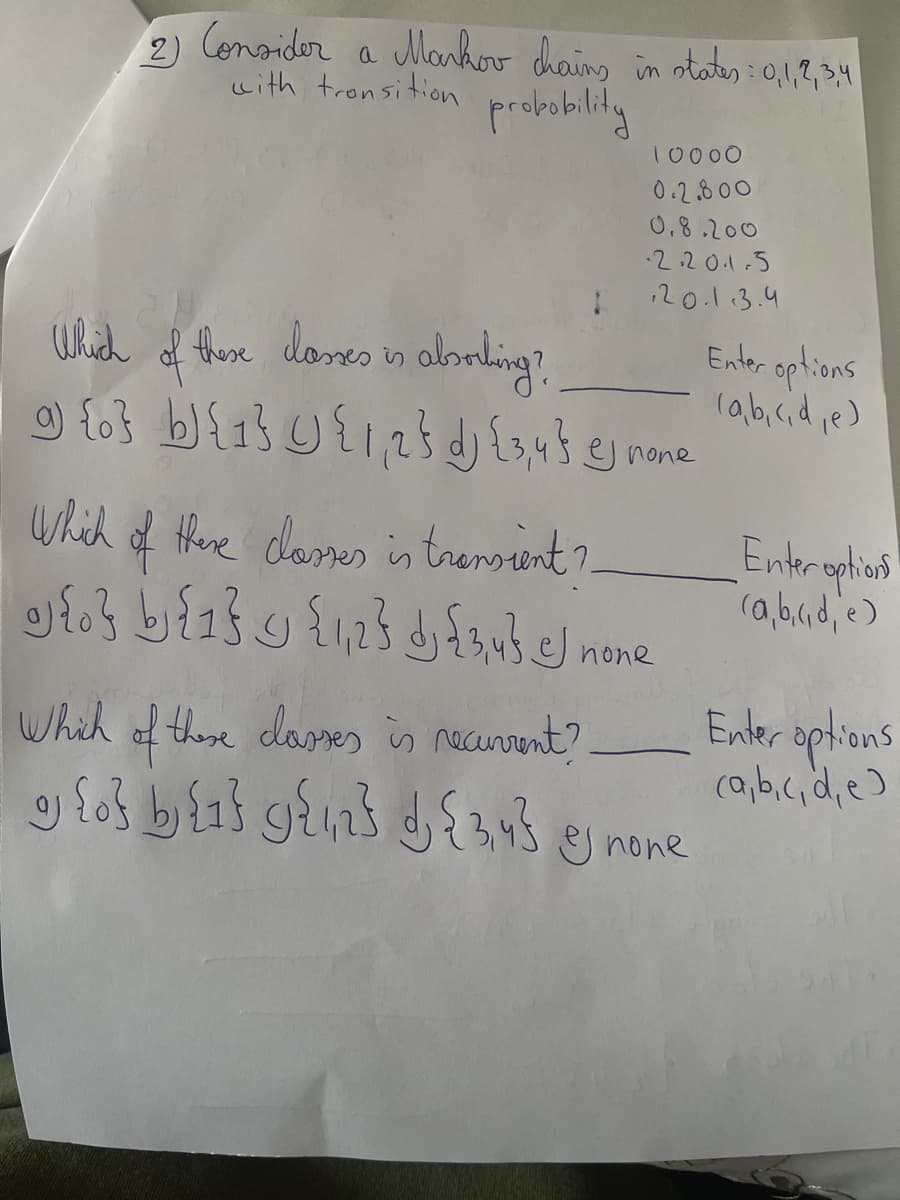 2) Consider a Markov chains in states : 0,1,2,3,4
with transition probability
10000
0.2.800
0,8.200
.2.20.1.5
.20.1.3.4
Which of these classes is absorbing? ____ Enter options
(a,b,c,d,e)
a) {0} b) {1} c) {1,2} d) {3,4} e) none
Which of these classes is transient? ____ Enter options
(a,b,c,d,e)
a) {0} b) {1} c) {1,2} d) {3,4} e) none
Which of these classes is recurrent? ____ Enter options
(a,b,c,d,e)
a) {0} b) {1} c) {1,2} d) {3,4} e) none